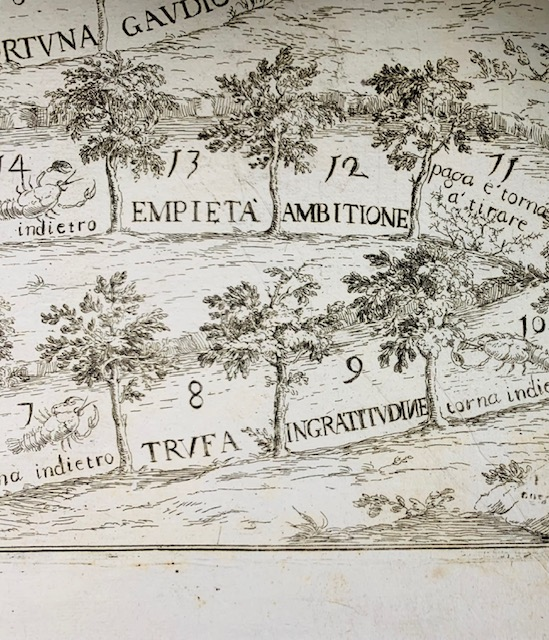 FORTVNA GAVDIO
14 13 12 11
indietro EMPIETÀ AMBITIONE paga è torna
a' tirare
7 8 9 10
indietro TRVFA INGRATITVDINE torna